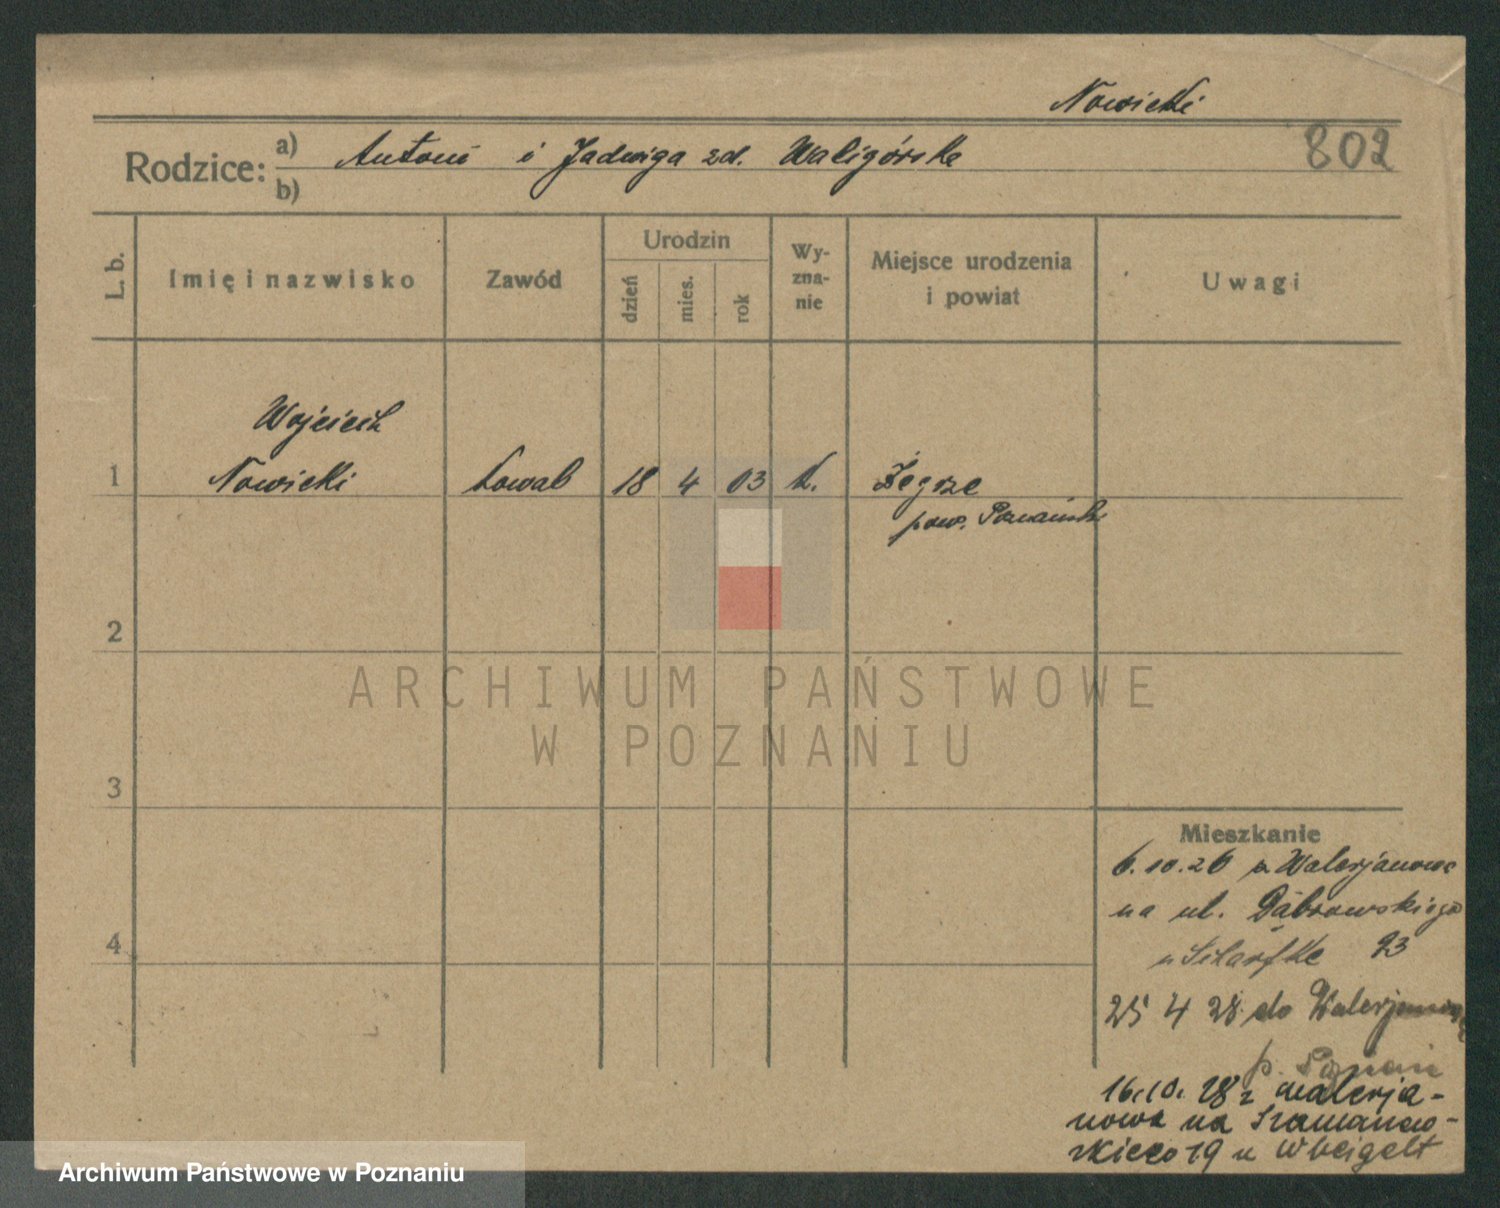 Nowicki
802
Rodzice: a) Antoni i Jadwiga zd. Waligórska
b)
L. b. Imię i nazwisko Zawód Urodzin dzień mies. rok Wy-zna-nie Miejsce urodzenia i powiat Uwagi
Wojciech
1 Nowicki kowal 18 4 03 k. Żegrze
pow. Poznański
2
ARCHIWUM PAŃSTWOWE
W POZNANIU
3
Mieszkanie
6.10.26 z Walerjanowa
na ul. Dąbrowskiego
4
93
25 4 28 do Walerjanowa
p. Poznań
16.10. 28 z Walerja-
nowa na Szamarzew-
skiego 19 u Weigelt
Archiwum Państwowe w Poznaniu